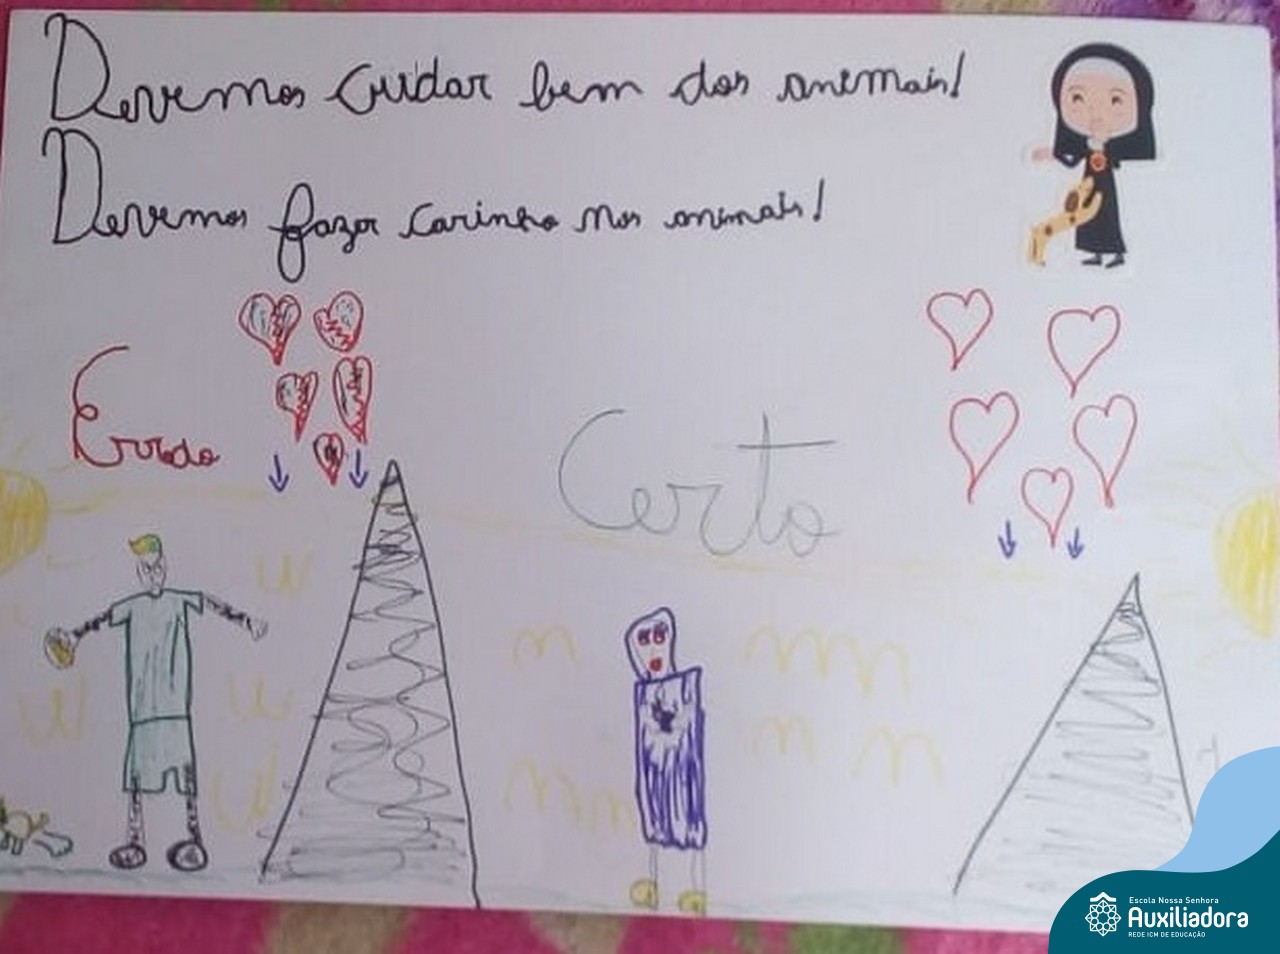 Devemos cuidar bem dos animais!
Devemos fazer carinho nos animais!
Errado
Certo
Escola Nossa Senhora
Auxiliadora
REDE ICM DE EDUCAÇÃO